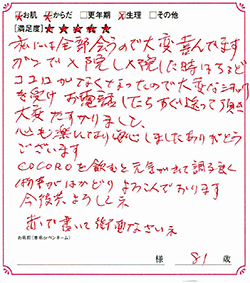 お肌 からだ □更年期 生理 □その他
[満足度] ★★★★★
私には全部合うので大変喜んでます
入院した時ほろほど
ココロがなくなっていたので大変なショック
を受け お電話したらすぐ送って頂き
大変たすかりまして、
心も楽になり安心しましたありがとう
ございます
COCOROを飲むと元気が出て調子良く
仕事がはかどりよろこんでおります
今後共よろしくネ
赤で書いて御免なさいネ
お名前(書名orペンネーム)
様 81 歳